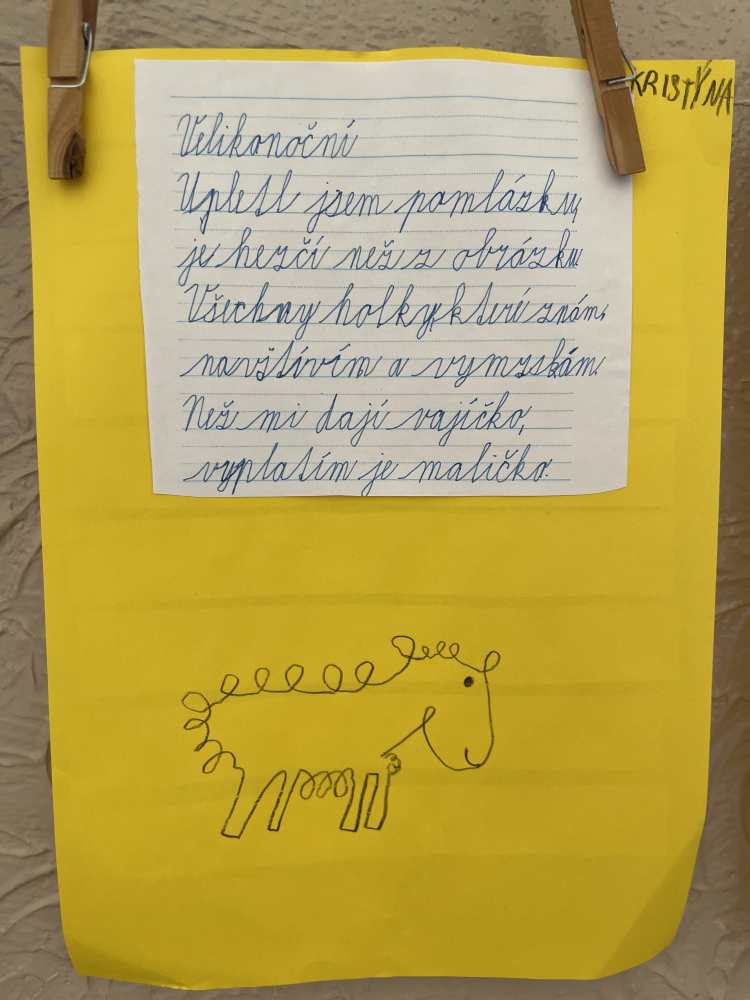 KRISTÝNA
Velikonoční
Upletl jsem pomlázku,
je hezčí než z obrázku
Všechny holky, které znám,
navštívím a vymrskám.
Než mi dají vajíčko,
vyplatím je maličko.